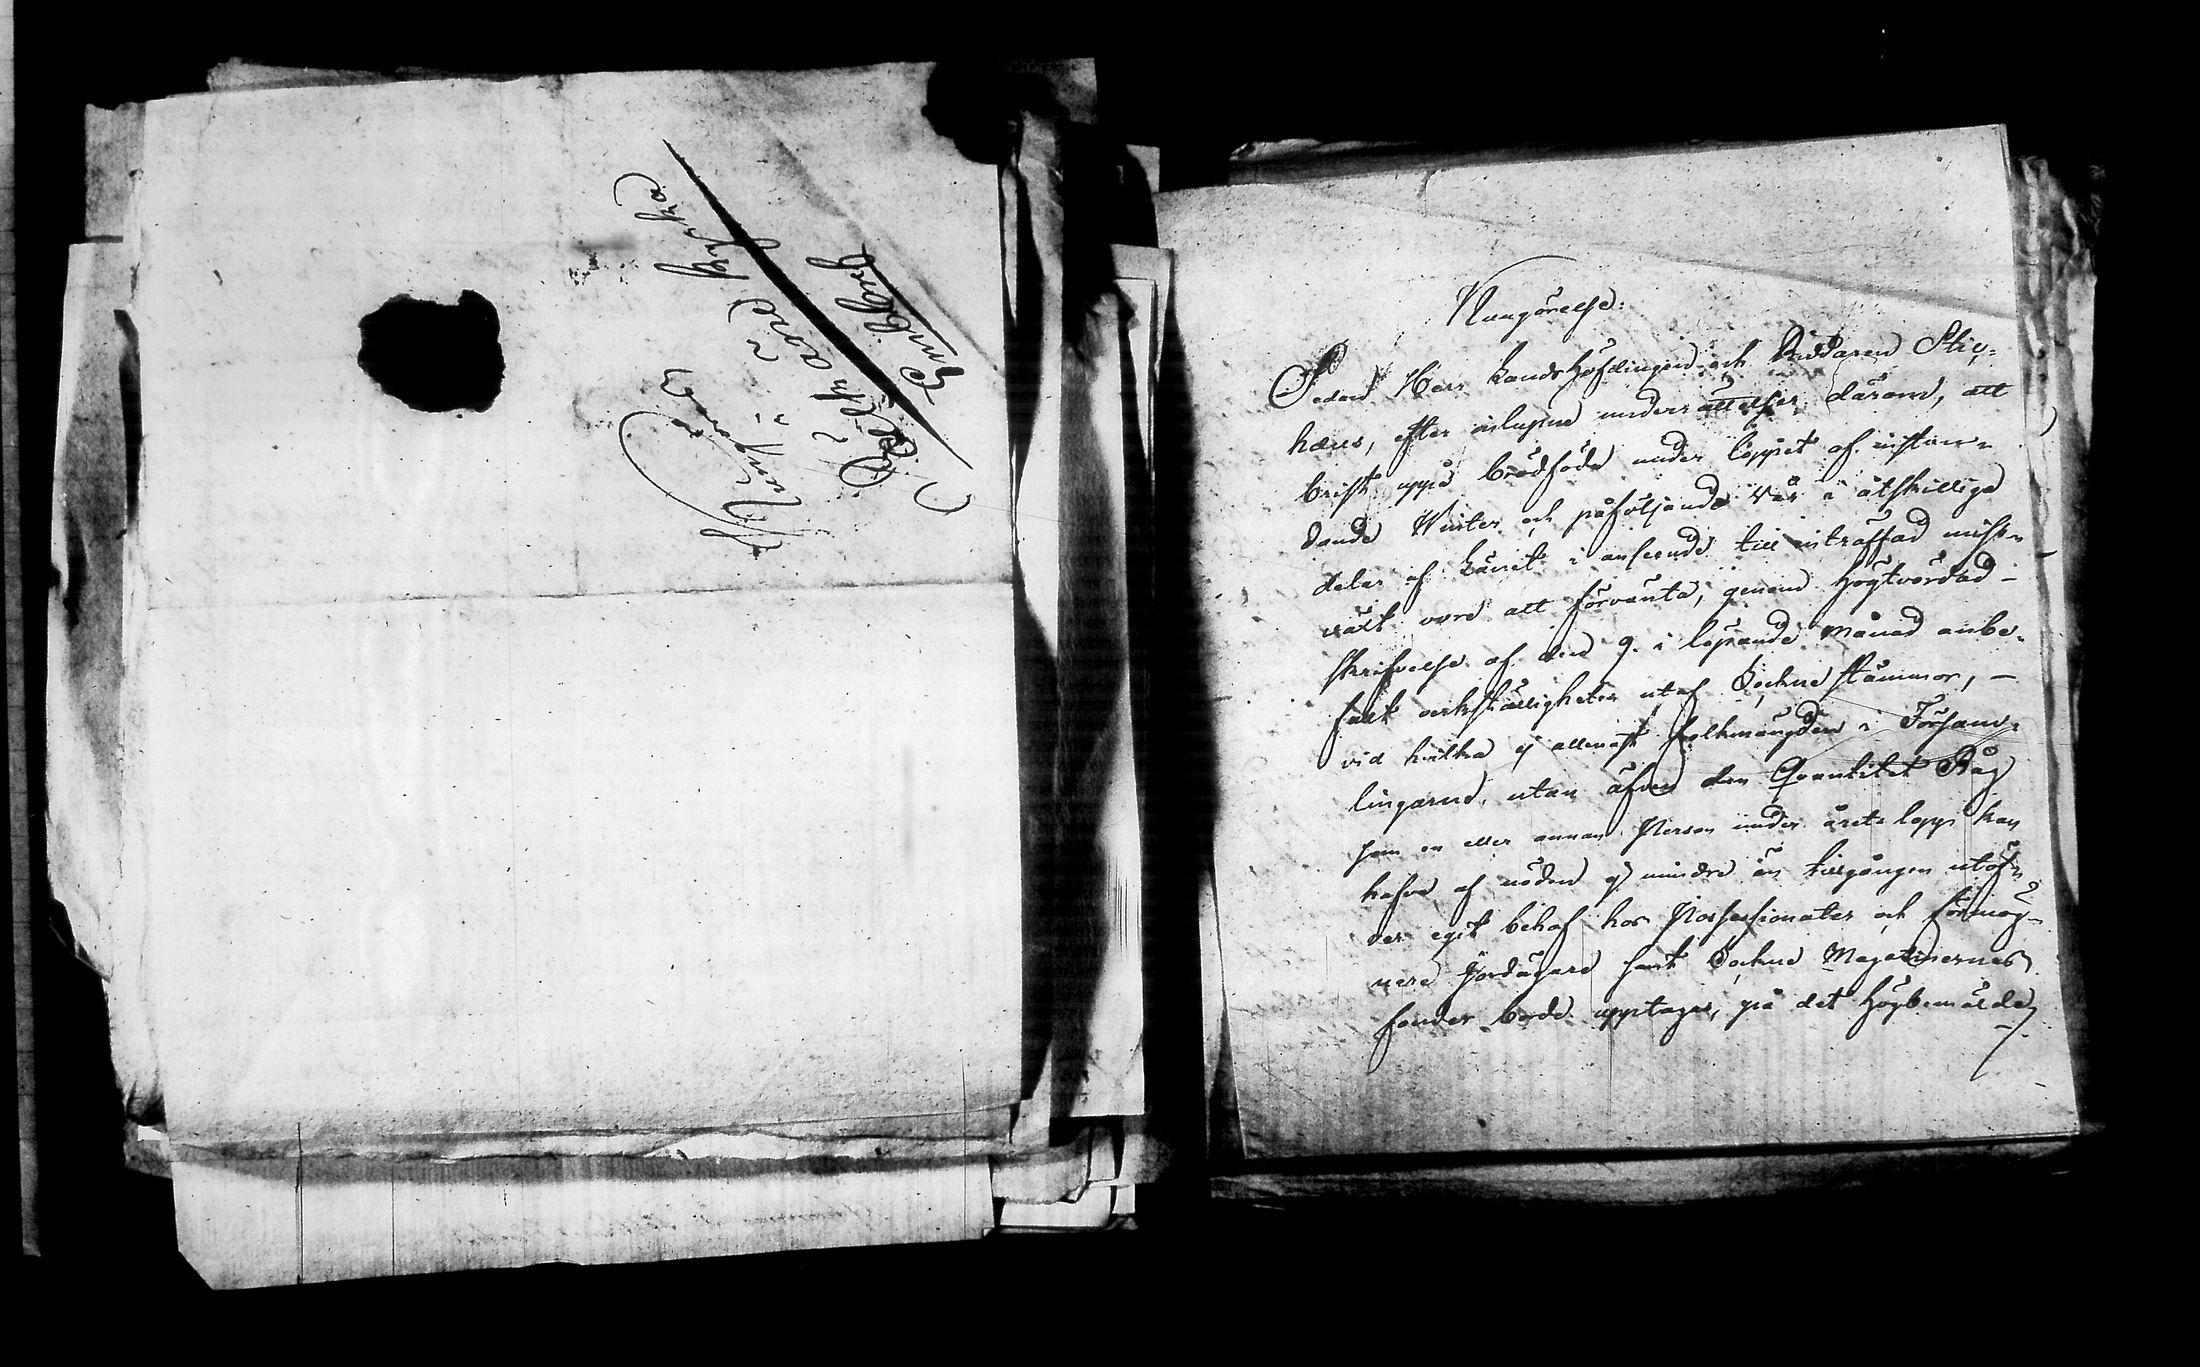 Kungörelse
i
Pielisjärvi Kyrka
Kungörelse:
Sedan Herr Landshöfdingen och Riddaren Stic-
hæus, efter inlupne underrättelser därom, att
brist uppå brödföda under loppet af instun-
dande Winter och påföljande Vår i åtskillige
delar af Länet i anseende till inträffad miss-
växt vore att förvänta, genom högtvördad
skrifvelse af den 9. i löpande månad anbe-
falt verkställigheten utaf Sockne stämmor,
vid hvilka ej allenast folkmängden i Försam-
lingarne, utan äfven den Quantitet Råg
som en eller annan Person under årets lopp kan
hafva af nöden ej mindre än tillgången utöf-
ver eget behof hos Possessionater och förmög-
nare Jordägare samt Sockne Magazinernas
fonder borde upptagas, på det Högbemälde